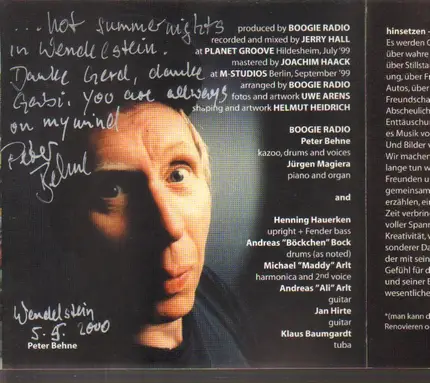 ...hot summernights
in Wendelstein.
Danke Gerd, danke
Gabi. You are allways
on my mind
Peter
Behne
Wendelstein
5. 5. 2000
Peter Behne
produced by BOOGIE RADIO
recorded and mixed by JERRY HALL
at PLANET GROOVE Hildesheim, July '99
mastered by JOACHIM HAACK
at M-STUDIOS Berlin, September '99
arranged by BOOGIE RADIO
fotos and artwork UWE ARENS
shaping and artwork HELMUT HEIDRICH
BOOGIE RADIO
Peter Behne
kazoo, drums and voices
Jürgen Magiera
piano and organ
and
Henning Hauerken
upright + Fender bass
Andreas "Böckchen" Bock
drums (as noted)
Michael "Maddy" Arlt
harmonica and 2nd voice
Andreas "Ali" Arlt
guitar
Jan Hirte
guitar
Klaus Baumgardt
tuba
hinsetzen -
Es werden G
über wahre
über Stillsta
ung, über Fr
Autos, über
Freundscha
Abscheulich
Enttäuschu
es Musik vo
Und Bilder v
Wir machen
lange tun w
Freunden u
gemeinsam
erzählen, ei
Zeit verbrin
voller Spann
Kreativität, v
sonderer Da
der mit sein
Gefühl für d
und seiner E
wesentliche
*(man kann d
Renovieren o